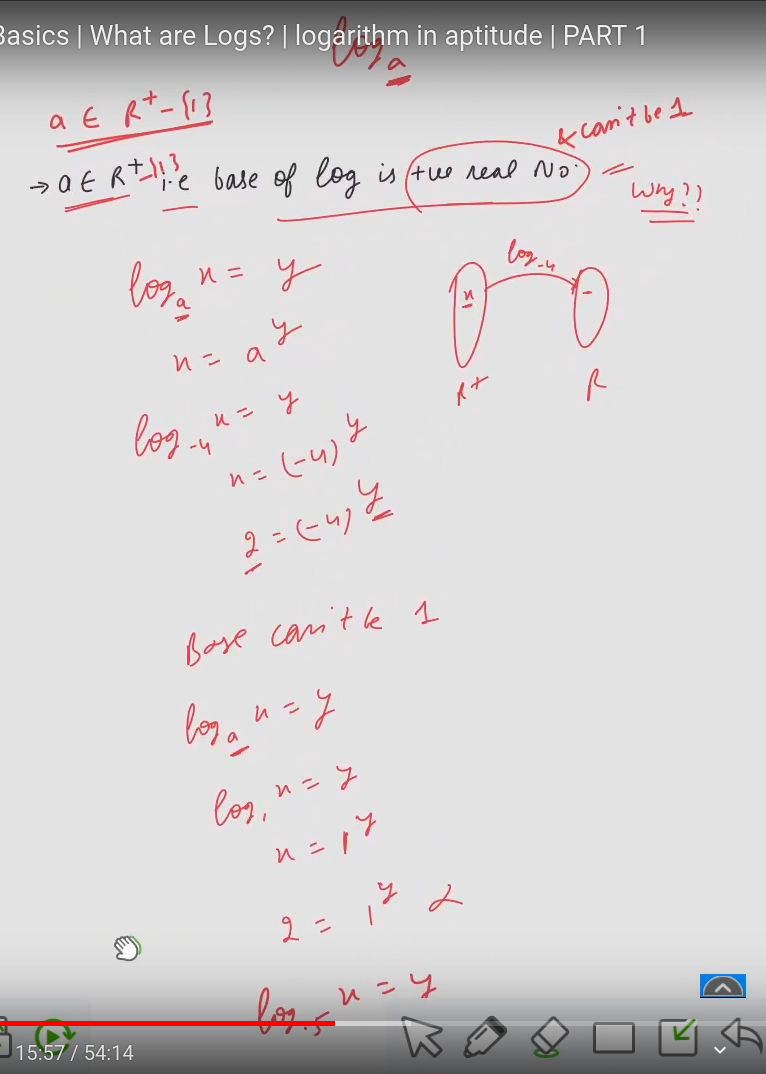 Basics | What are Logs? | logarithm in aptitude | PART 1
log a
a ∈ R⁺ - {1}
& can't be 1
→ a ∈ R⁺ - {1} i.e base of log is +ve real No.
Why??
logₐ x = y
log₋₄
x -
x = a^y
R⁺ R
log₋₄ x = y
x = (-4)^y
2 = (-4)^y
Base can't be 1
logₐ x = y
log₁ x = y
x = 1^y
2 = 1^y
log.₅ x = y
15:57 / 54:14